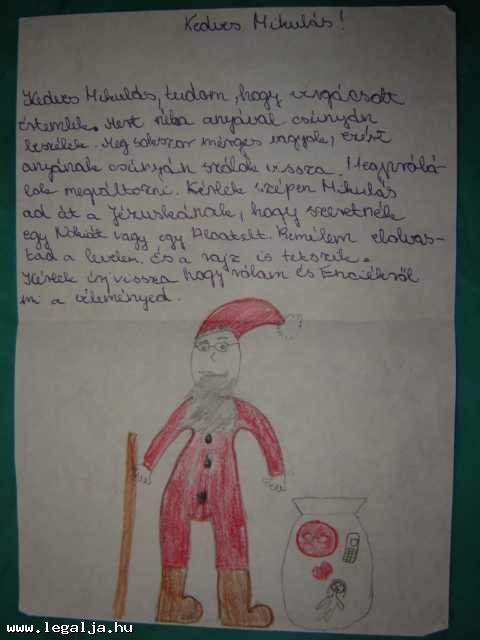 Kedves Mikulás!
Kedves Mikulás, tudom, hogy virgácsott
értemlek. Mert néha anyával csúnyán
beszélek. Meg sokszor mérges vagyok, ezért
anyának csúnyán szólok vissza. Megpróbá-
lok megváltozni. Kérlek szépen Mikulás
ad át a Jézuskának, hogy szeretnék
egy Nókiát vagy egy Alcatelt. Remélem elolvas-
tad a levelem. és a rajz is tetszik.
Kérlek írj vissza hogy rólam és
mi a véleményed.
www.legalja.hu